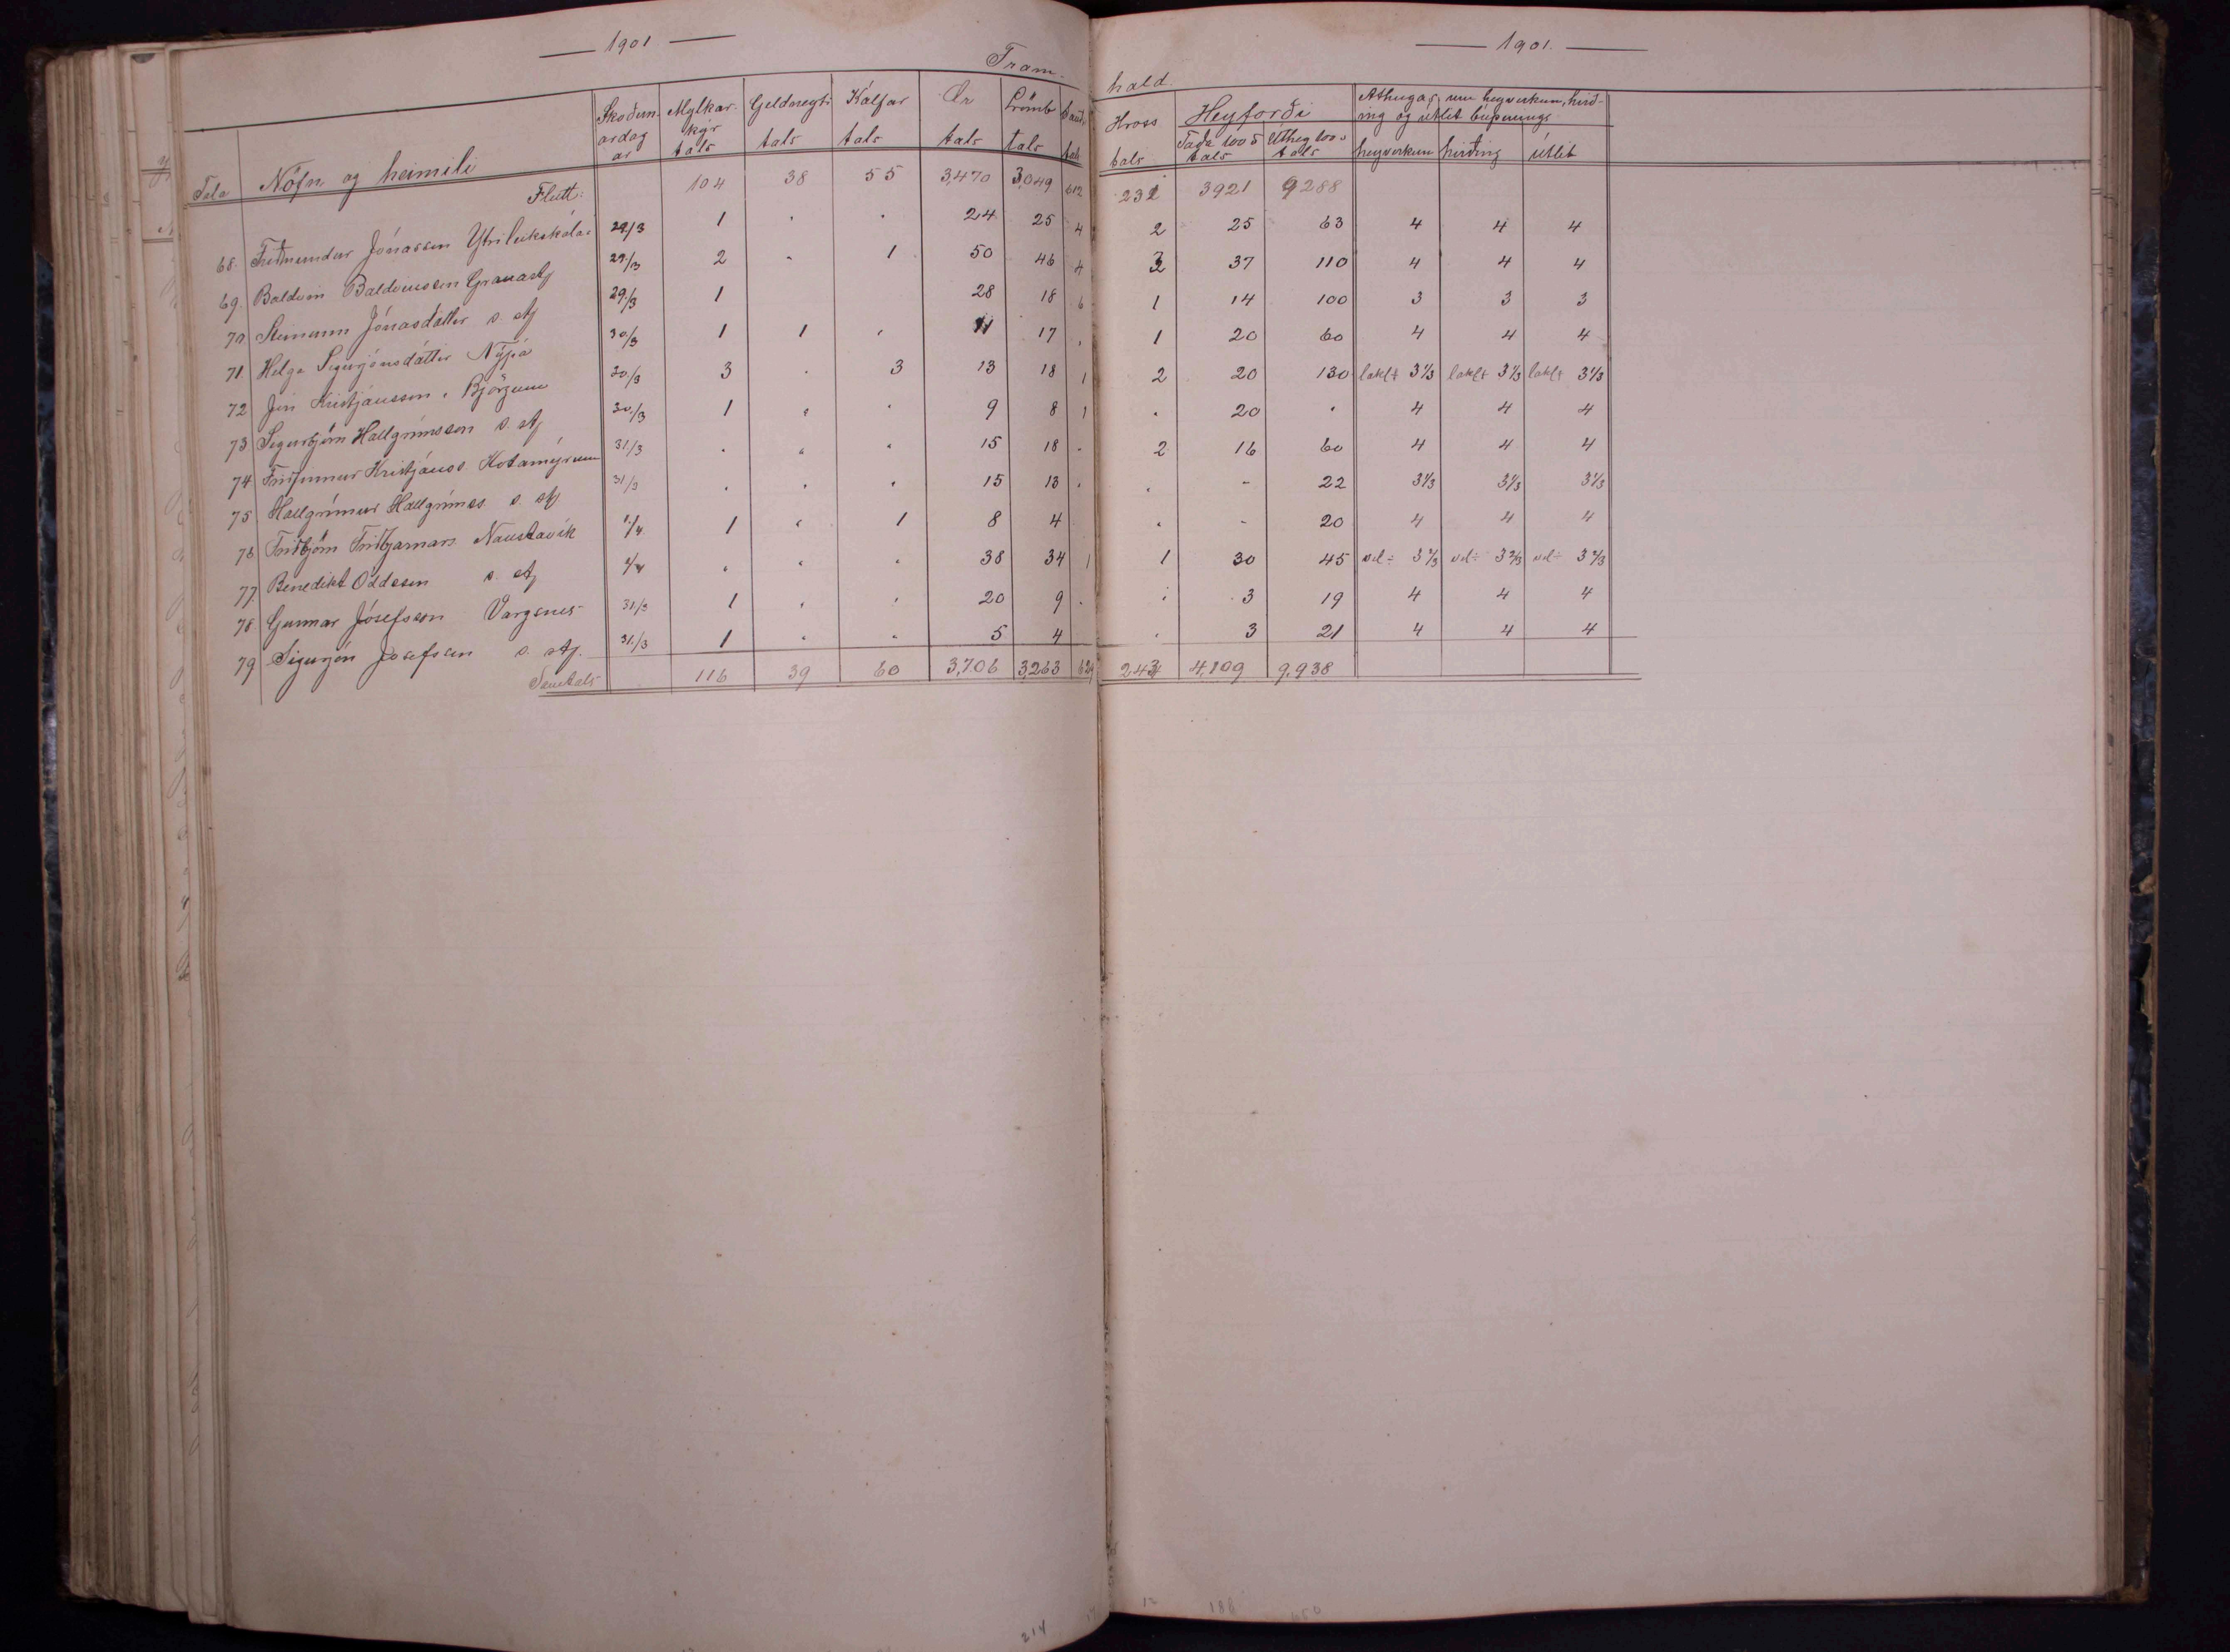 — 1901 —
— 1901. —
Fram-
hald.
Tala | Nöfn og heimili | Skoðunardagar | Mjólkar kýr tals | Geldneyti tals | Kálfar tals | Ær tals | Lömb tals | Sauð. tals | Hross tals | Heyforði Taða 100 ℔ tals | Úthey 100 tals | Athugas. um heyverkun, hirðing og útlit búpenings heyverkun | hirðing | útlit
Flutt: | 104 | 38 | 55 | 3,470 | 3,049 | 612 | 232 | 3921 | 9288
68. Friðmundur Jónasson Ytrileikskála | 29./3 | 1 | " | " | 24 | 25 | 4 | 2 | 25 | 63 | 4 | 4 | 4
69. Baldvin Baldvinsson Granastj | 29./3 | 2 | " | 1 | 50 | 46 | 4 | 3 | 37 | 110 | 4 | 4 | 4
70 Steinunn Jónasdóttir s. stj | 29./3 | 1 | 28 | 18 | 6 | 1 | 14 | 100 | 3 | 3 | 3
71 Helga Sigurjónsdóttir Nýpá | 30./3 | 1 | 1 | " | 11 | 17 | " | 1 | 20 | 60 | 4 | 4 | 4
72 Jón Kristjánsson, Björgum | 30./3 | 3 | " | 3 | 13 | 18 | 1 | 2 | 20 | 130 | lakl+ 3⅓ | lakl+ 3⅓ | lakl+ 3⅓
73 Sigurbjörn Hallgrímsson s. stj | 30./3 | 1 | " | " | 9 | 8 | 1 | " | 20 | " | 4 | 4 | 4
74. Friðfinnur Kristjánss. Kotamýrum | 31./3 | " | " | " | 15 | 18 | - | 2 | 16 | 60 | 4 | 4 | 4
75 Hallgrímur Hallgrímss. s. stj | 31/3 | " | " | " | 15 | 13 | " | " | - | 22 | 3⅓ | 3⅓ | 3⅓
76 Friðbjörn Friðbjarnars. Naustavík | 1./4 | 1 | " | 1 | 8 | 4 | " | - | 20 | 4 | 4 | 4
77. Benedikt Oddsson s. stj | 1/4 | " | " | " | 38 | 34 | 1 | 1 | 30 | 45 | vel÷ 3⅔ | vel÷ 3⅔ | vel÷ 3⅔
78. Gunnar Jósefsson Vargsnes | 31/3 | 1 | " | " | 20 | 9 | " | " | 3 | 19 | 4 | 4 | 4
79 Sigurjón Jósefsson s. stj. | 31./3 | 1 | " | " | 5 | 4 | " | 3 | 21 | 4 | 4 | 4
Samtals | 116 | 39 | 60 | 3,706 | 3,263 | 629 | 243 | 4,109 | 9,938
214
12
188
650